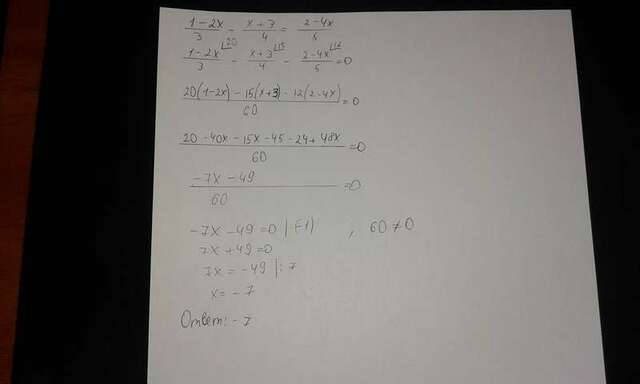 (1-2x)/3 - (x+3)/4 = (2-4x)/5
(1-2x)/3 ⌊20 - (x+3)/4 ⌊15 - (2-4x)/5 ⌊12 = 0
(20(1-2x) - 15(x+3) - 12(2-4x))/60 = 0
(20 - 40x - 15x - 45 - 24 + 48x)/60 = 0
(-7x - 49)/60 = 0
-7x - 49 = 0 |(-1) , 60 ≠ 0
7x + 49 = 0
7x = -49 |: 7
x = -7
Ответ: -7